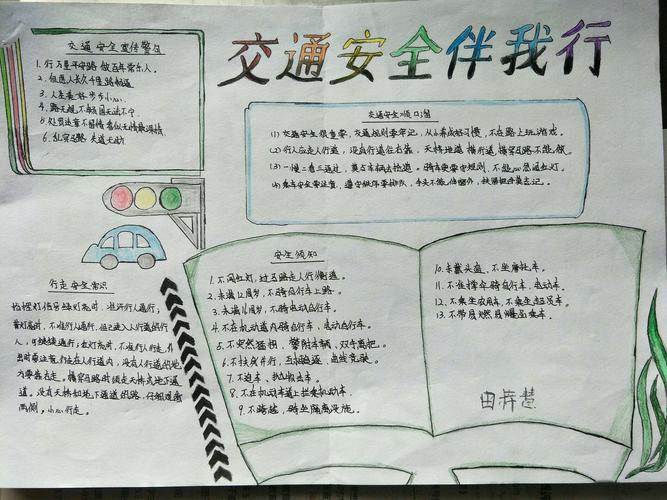 交通安全伴我行
交通安全宣传警句
1. 行万里平安路 做百年常乐人。
2. 但愿人长久 千里路畅通
3. 人生美好 步步小心
4. 路无规不畅 国无法不宁
5. 处罚违章不留情 看似无情最深情
6. 乱穿马路 失道无助
交通安全顺口溜
(1) 交通安全很重要，交通规则要牢记，从小养成好习惯，不在路上玩游戏。
(2) 行人应走人行道，没有行道往右靠，天桥地道横行道，横穿马路不能做。
(3) 一慢二看三通过，莫与车辆去抢道。骑车更要守规则，不能闯红灯。
(4) 乘车安全要注意，遵守秩序要排队，手头不能伸窗外，扶紧把手莫忘记。
行走安全常识
指挥灯信号绿灯亮时，准许行人通行；
黄灯亮时，不准行人通行，但已进入人行道的行
人，可继续通行；红灯亮时，不准行人行走。外
出时要注意行走在人行道内，没有人行道的地
方要靠右走。横穿马路时须走天桥或地下通
道。没有天桥和地下通道的路，仔细观看
两侧，小心行走。
安全须知
1. 不闯红灯，过马路走人行横道。
2. 未满12周岁，不骑自行车上路。
3. 未满16周岁，不骑电动自行车。
4. 不在机动道内骑自行车、电动自行车。
5. 不突然猛拐、攀附车辆、双手离把。
6. 不扶身并行、互相追逐、曲线竞驶。
7. 不追车、扒车
8. 不在机动车道上拦乘机动车。
9. 不跨越、骑坐隔离设施。
10. 未戴头盔，不坐摩托车。
11. 不准撑伞骑自行车、电动车。
12. 不乘坐农用车，不乘坐超员车。
13. 不带易燃易爆品乘车。